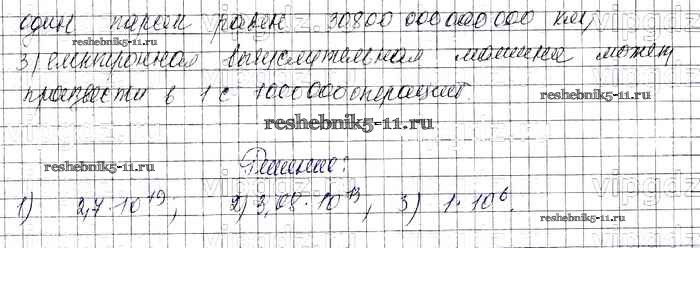 один парсек равен 30800 000 000 000 км;
reshebnik5-11.ru
3) электронная вычислительная машина может
произвести в 1 с 1000000 операций.
reshebnik5-11.ru
reshebnik5-11.ru
reshebnik5-11.ru
Решение:
1) 2,7·10¹⁹; 2) 3,08·10¹³; 3) 1·10⁶.
reshebnik5-11.ru
reshebnik5-11.ru